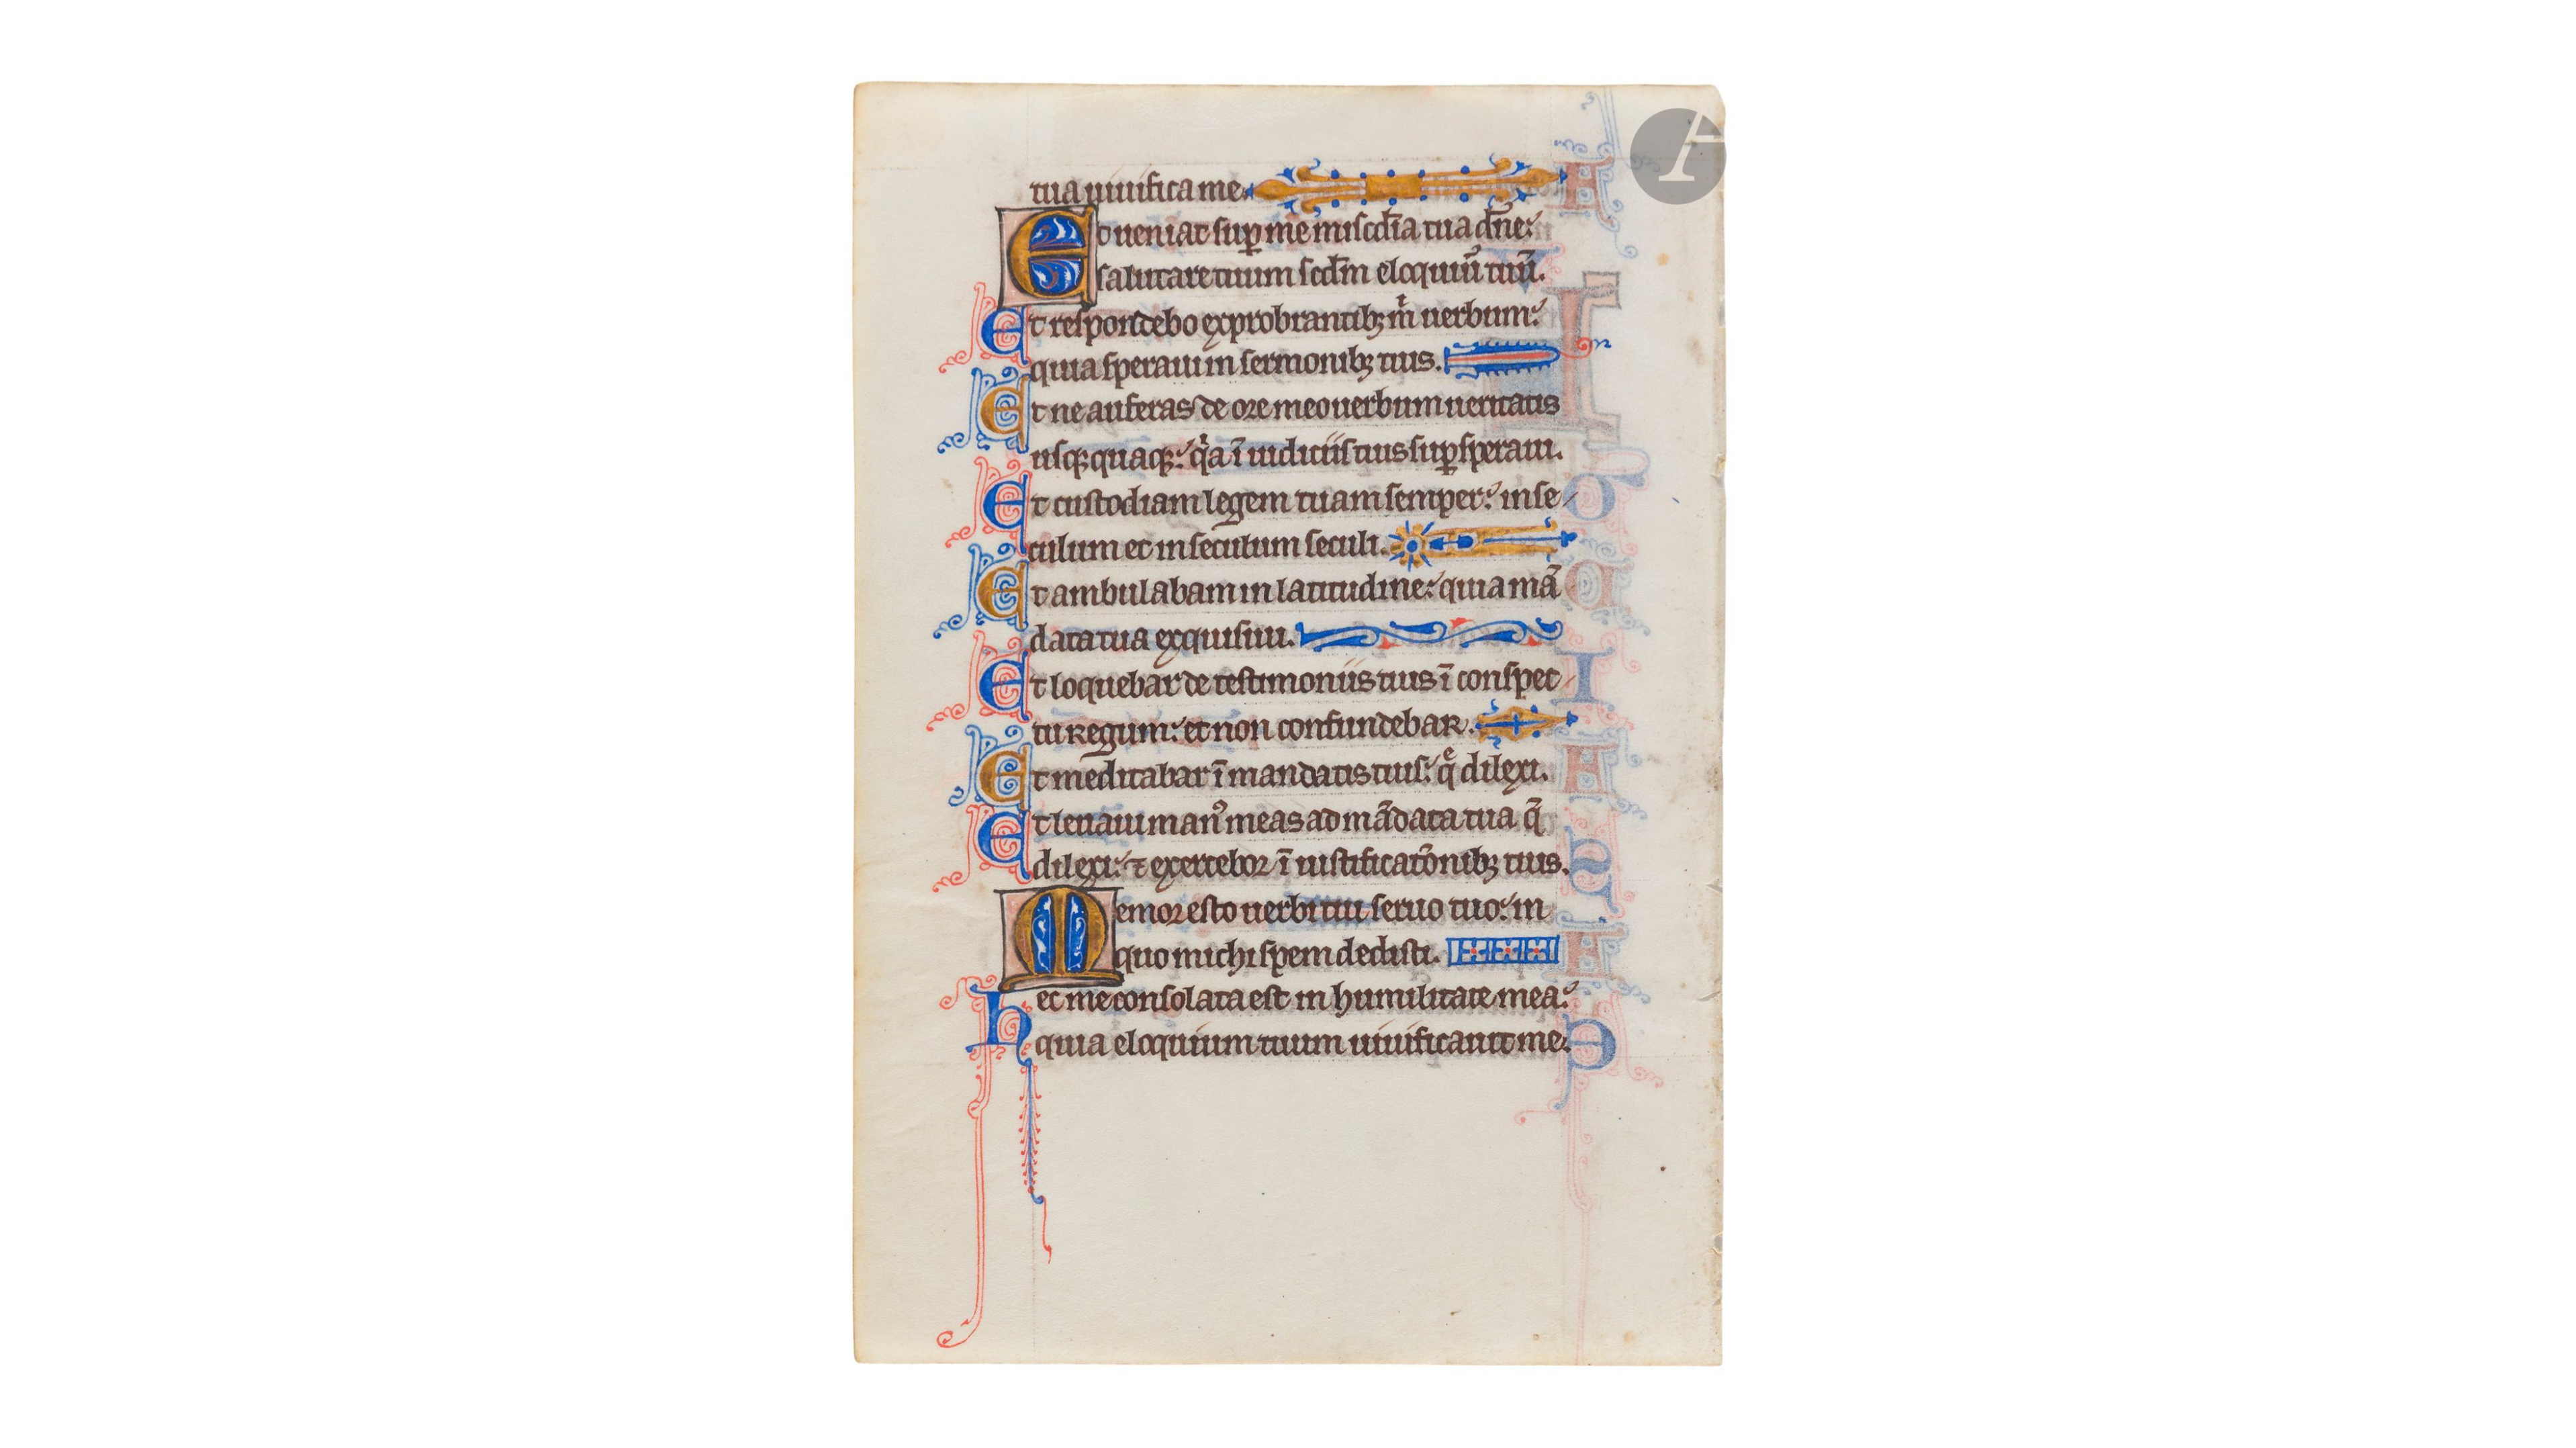 tua uiuifica me.
Et ueniat suꝑ me miscd̅ia tua dn̅e:
salutare tuum scd̅m eloquiu̅ tuu̅.
Et respondebo exprobrantibꝫ m̍ uerbum:
quia speraui in sermonibꝫ tuis.
Et ne auferas de ore meo uerbum ueritatis
usqꝫquaqꝫ: q̍a i̅ iudiciis tuis suꝑsperaui.
Et custodiam legem tuam semper: in se/
culum et in seculum seculi.
Et ambulabam in latitudine: quia ma̅
data tua exquisiui.
Et loquebar de testimoniis tuis i̅ conspec/
tu regum: et non confundebar.
Et meditabar i̅ mandatis tuis: qͤ dilexi.
Et leuaui man᷒ meas ad ma̅data tua q̅
dilexi: ⁊ exercebor i̅ iustificato̅nibꝫ tuis.
Memor esto uerbi tui seruo tuo: in
quo michi spem dedisti.
Hec me consolata est in humilitate mea:
quia eloquium tuum uiuificauit me.